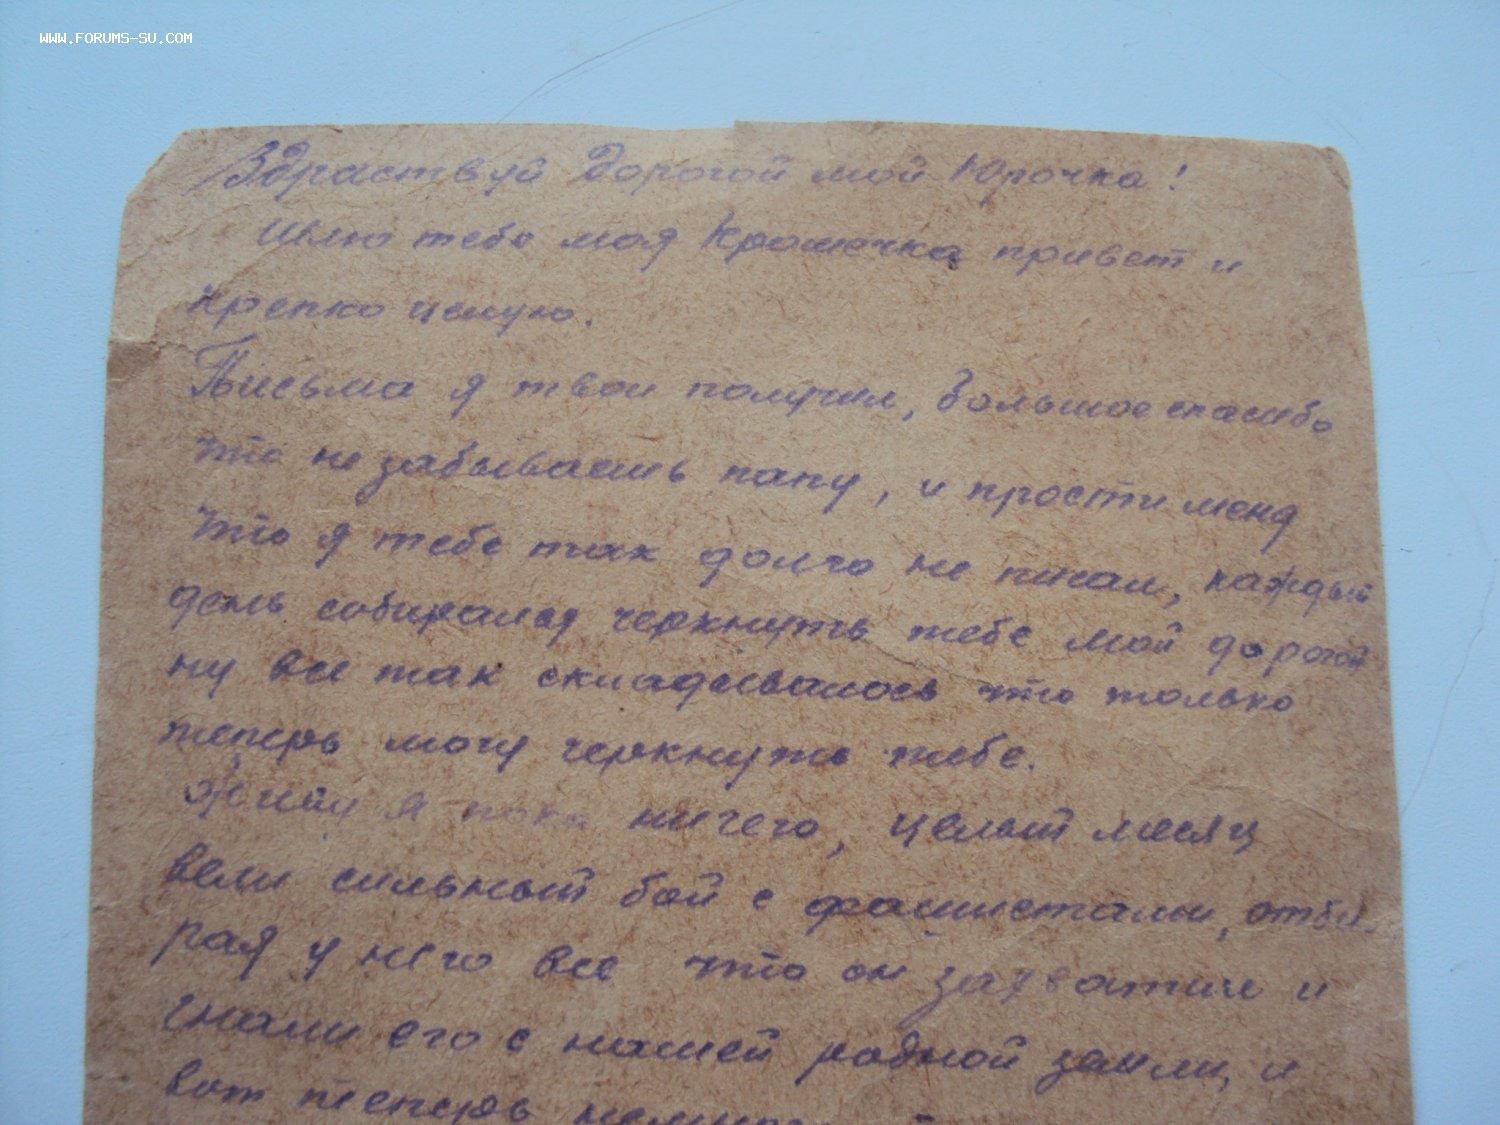 WWW.FORUMS-SU.COM
Здраствуй дорогой мой Юрочка!
Шлю тебе моя Крошечка привет и
крепко целую.
Письма я твои получил, большое спасибо
что не забываешь папу, и прости меня
что я тебе так долго не писал, каждый
день собирался черкнуть тебе мой дорогой
ну все так складывалось что только
теперь могу черкнуть тебе.
Живу я пока ничего, целый месяц
вели сильный бой с фашистами, отби-
рая у него все что он захватил и
гнали его с нашей родной земли, и
вот теперь